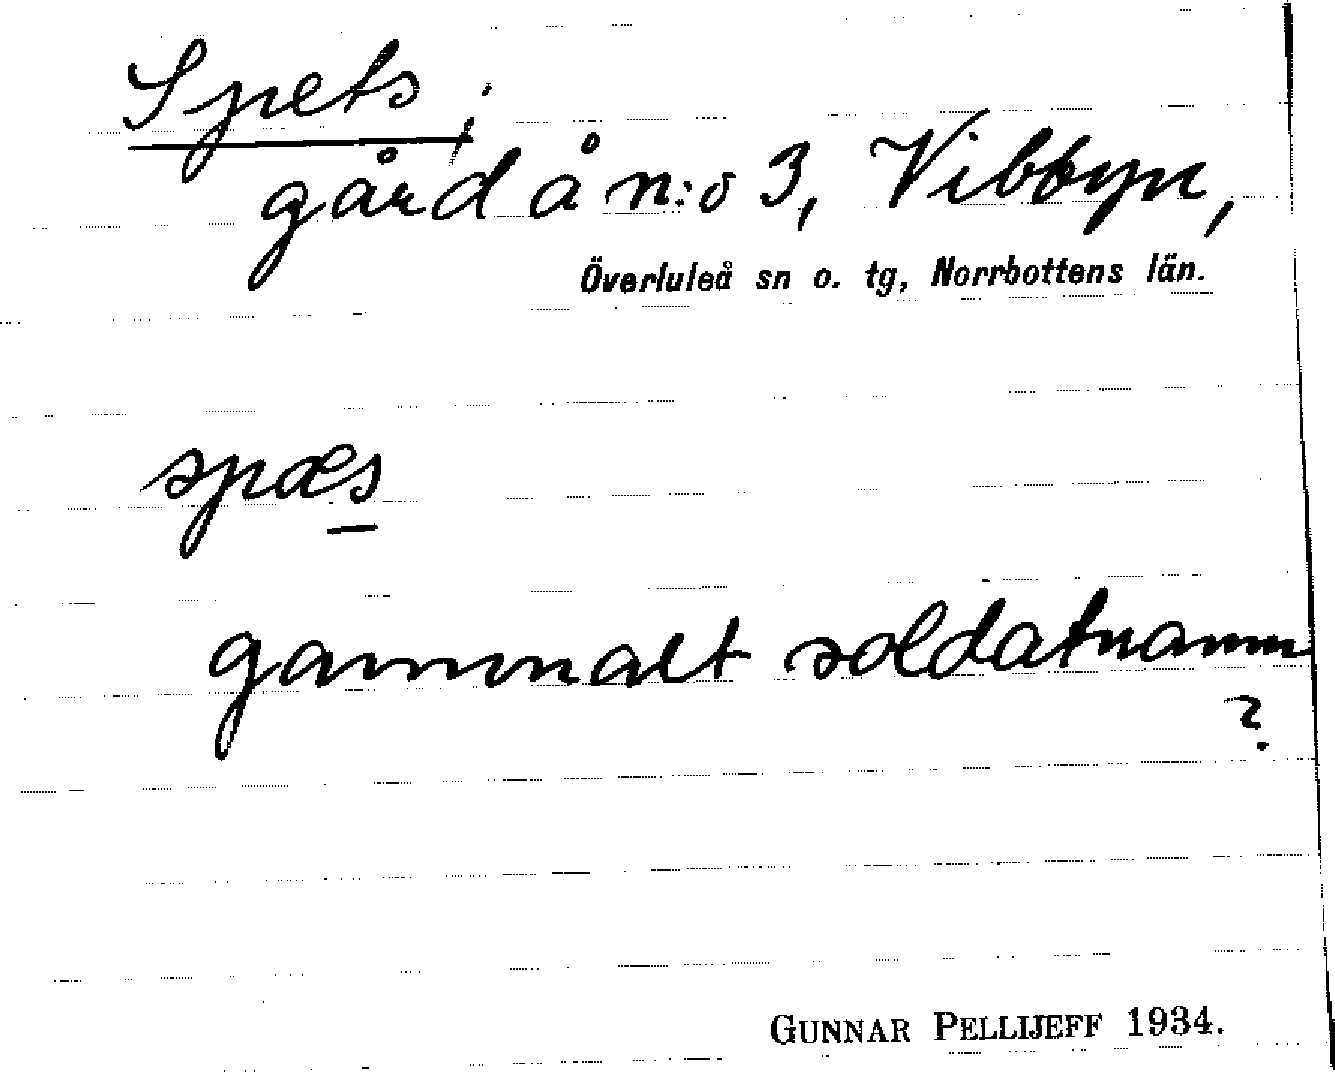 Spets;
gård å n:o 3, Vibbyn,
Överluleå sn o. tg, Norrbottens län.
spæs
gammalt soldatnamn
?
GUNNAR PELLIJEFF 1934.